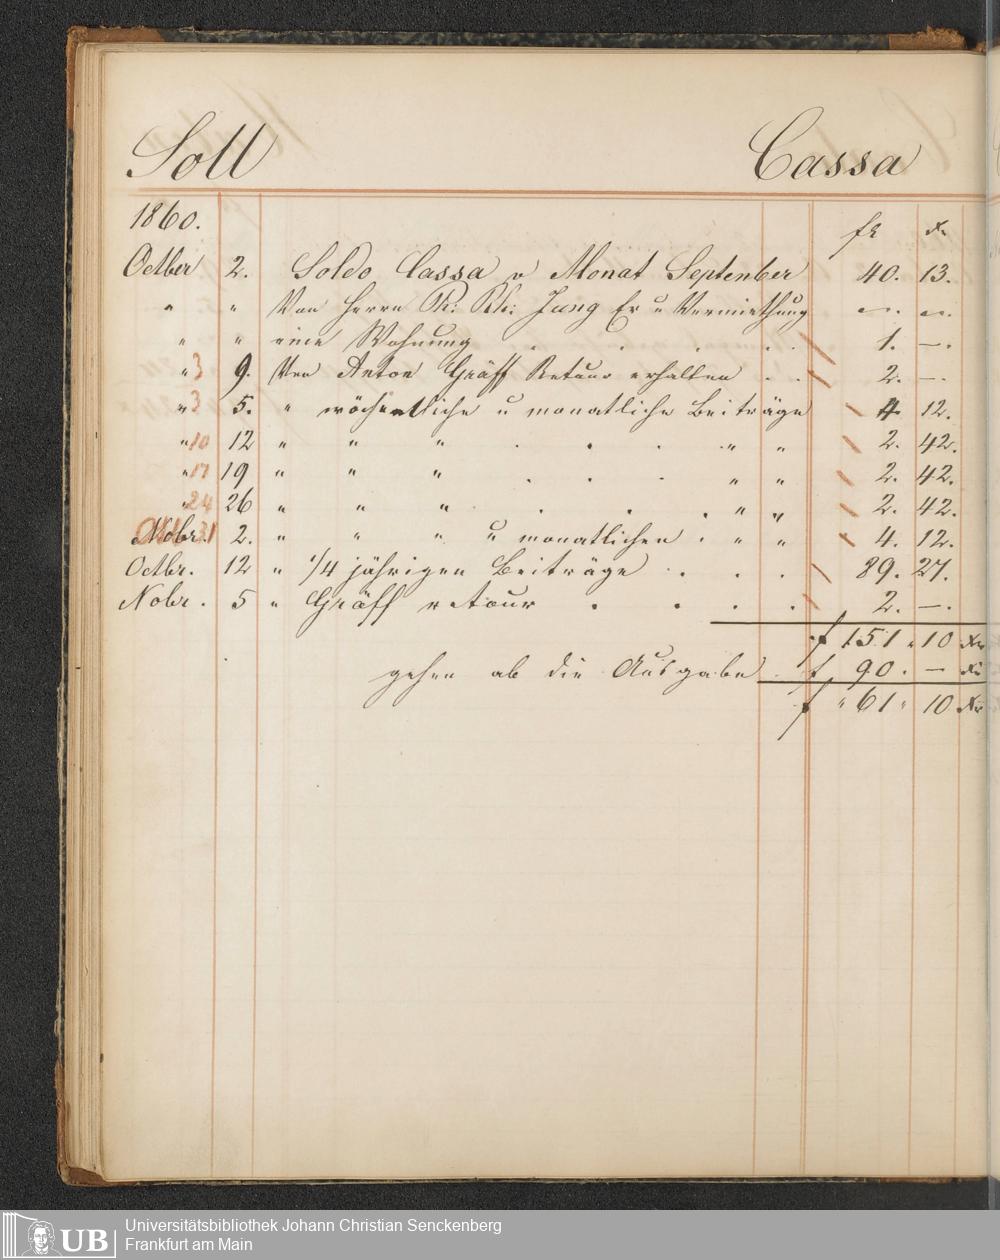 Soll Cassa
1860. fl x.
Octber 2. Soldo Cassa v Monat September 40. 13.
" " Von Herrn Ph: Jung u Vermiethung ". ".
" " eine Wohnung . . . . . 1. —.
" 3 9. Von Anton Gräff Retour erhalten . . 2. —.
" 3 5. " wöchentliche u monatliche Beiträge 4 12.
" 10 12 " " " . . . " " 2. 42.
" 17 19 " " " . . . " " 2. 42.
" 24 26 " " " . . . " " 2. 42.
Nobr. 31 2. " " " u monatlichen . " " 4. 12.
Octbr. 12 " 1/4 jährigen Beiträge . . . 89. 27.
Nobr. 5 " Gräff retour . . . . 2. —.
f 151 " 10 Xr
gehen ab die Ausgabe f 90. — Xr
f " 61 " 10 Xr
UB Universitätsbibliothek Johann Christian Senckenberg
Frankfurt am Main